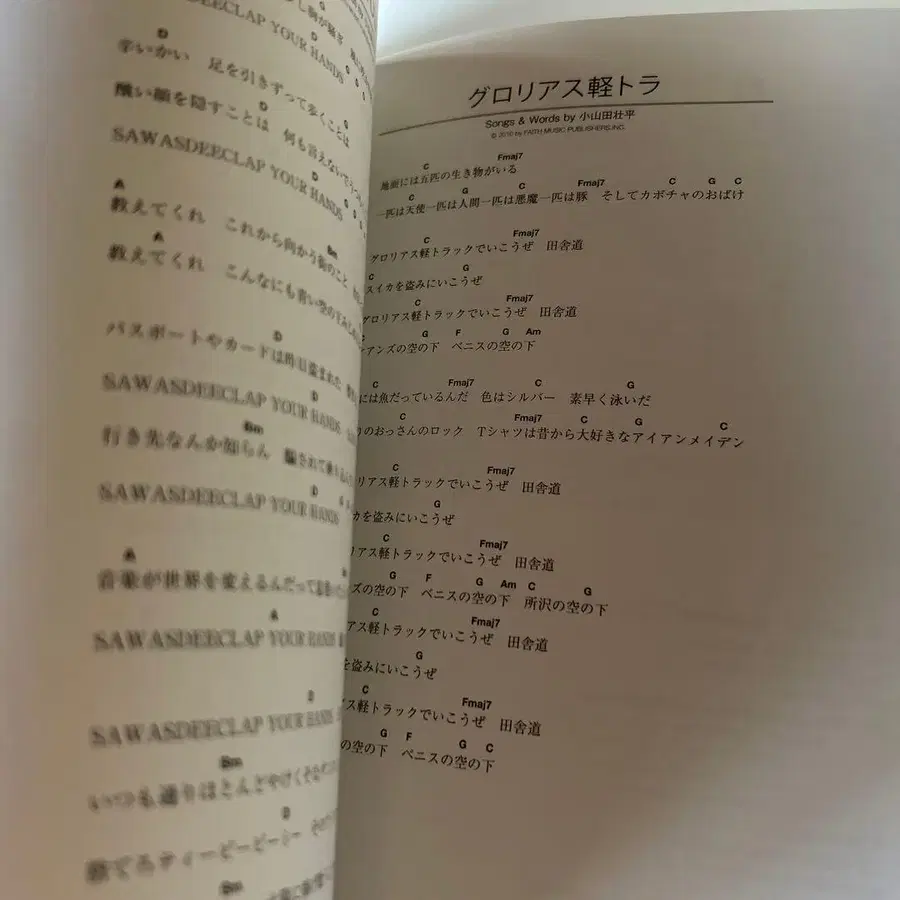 G
し胸が騒ぎ
SAWASDEECLAP YOUR HANDS
D
D G
辛いかい 足を引きずって歩くことは
D G
醜い顔を隠すことは 何も言えないで
SAWASDEECLAP YOUR HANDS
D
A
教えてくれ これから向かう街のこと
A Bm
教えてくれ こんなにも青い空の下
D
パスポートやカードは昨日盗まれた
SAWASDEECLAP YOUR HANDS
D
Bm
行き先なんか知らん 騙されて
SAWASDEECLAP YOUR HANDS
D
A
音楽が世界を変えるんだって
A
SAWASDEECLAP YOUR HANDS
D
SAWASDEECLAP YOUR HANDS
Bm
いつも通りほとんどやけくそ
D
捨てろティーピーピーシー
Bm
グロリアス軽トラ
Songs & Words by 小山田壮平
© 2010 by FAITH MUSIC PUBLISHERS INC.
C Fmaj7
地面には五匹の生き物がいる
C G C Fmaj7 C G C
一匹は天使一匹は人間一匹は悪魔一匹は豚 そしてカボチャのおばけ
C Fmaj7
グロリアス軽トラックでいこうぜ 田舎道
C G
スイカを盗みにいこうぜ
C Fmaj7
グロリアス軽トラックでいこうぜ 田舎道
C G F G Am
アンズの空の下 ベニスの空の下
C Fmaj7 C G
には魚だっているんだ 色はシルバー 素早く泳いだ
C Fmaj7 C G C
りのおっさんのロック Tシャツは昔から大好きなアイアンメイデン
C Fmaj7
リアス軽トラックでいこうぜ 田舎道
G
カを盗みにいこうぜ
C Fmaj7
リアス軽トラックでいこうぜ 田舎道
G F G Am C G
ズの空の下 ベニスの空の下 所沢の空の下
C Fmaj7
アス軽トラックでいこうぜ 田舎道
G
を盗みにいこうぜ
C Fmaj7
ス軽トラックでいこうぜ 田舎道
G F G C
の空の下 ベニスの空の下